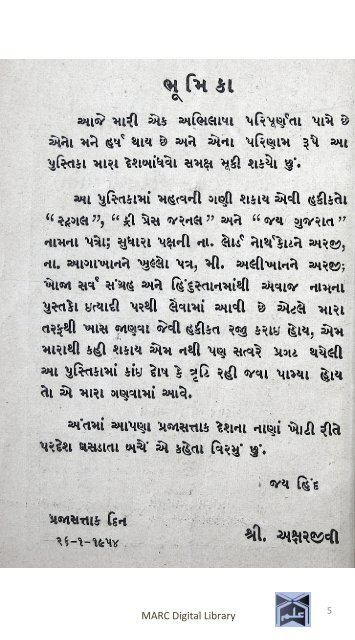 ભૂમિકા
આજે મારી એક અભિલાષા પરિપૂર્ણતા પામે છે
એનો મને હર્ષ થાય છે અને એના પરિણામ રૂપે આ
પુસ્તિકા મારા દેશબાંધવો સમક્ષ મૂકી શકયો છું.
આ પુસ્તિકામાં મહત્વની ગણી શકાય એવી હકીકતો
“સ્ટ્રગલ”, “ફ્રી પ્રેસ જરનલ” અને “જય ગુજરાત”
નામના પત્રો; સુધારા પક્ષની ના. લોર્ડ નોર્થકોટને અરજી,
ના. આગાખાનને ખુલ્લો પત્ર, મી. અલીખાનને અરજી;
ખોજા સર્વ સંગ્રહ અને હિંદુસ્તાનમાંથી અવાજ નામના
પુસ્તકો ઇત્યાદી પરથી લેવામાં આવી છે એટલે મારા
તરફથી ખાસ જાણવા જેવી હકીકત રજી કરાઇ હોય, એમ
મારાથી કહી શકાય એમ નથી પણ સત્વરે પ્રગટ થયેલી
આ પુસ્તિકામાં કાંઇ દોષ કે ત્રૃટિ રહી જવા પામ્યા હોય
તો એ મારા ગણવામાં આવે.
અંતમાં આપણા પ્રજાસત્તાક દેશના નાણાં ખોટી રીતે
પરદેશ ઘસડાતા બચેં એ કહેતા વિરમું છું.
જય હિંદ
પ્રજાસત્તાક દિન
૨૬-૧-૧૯૫૪
શ્રી. અક્ષરજીવી
MARC Digital Library
علم
5